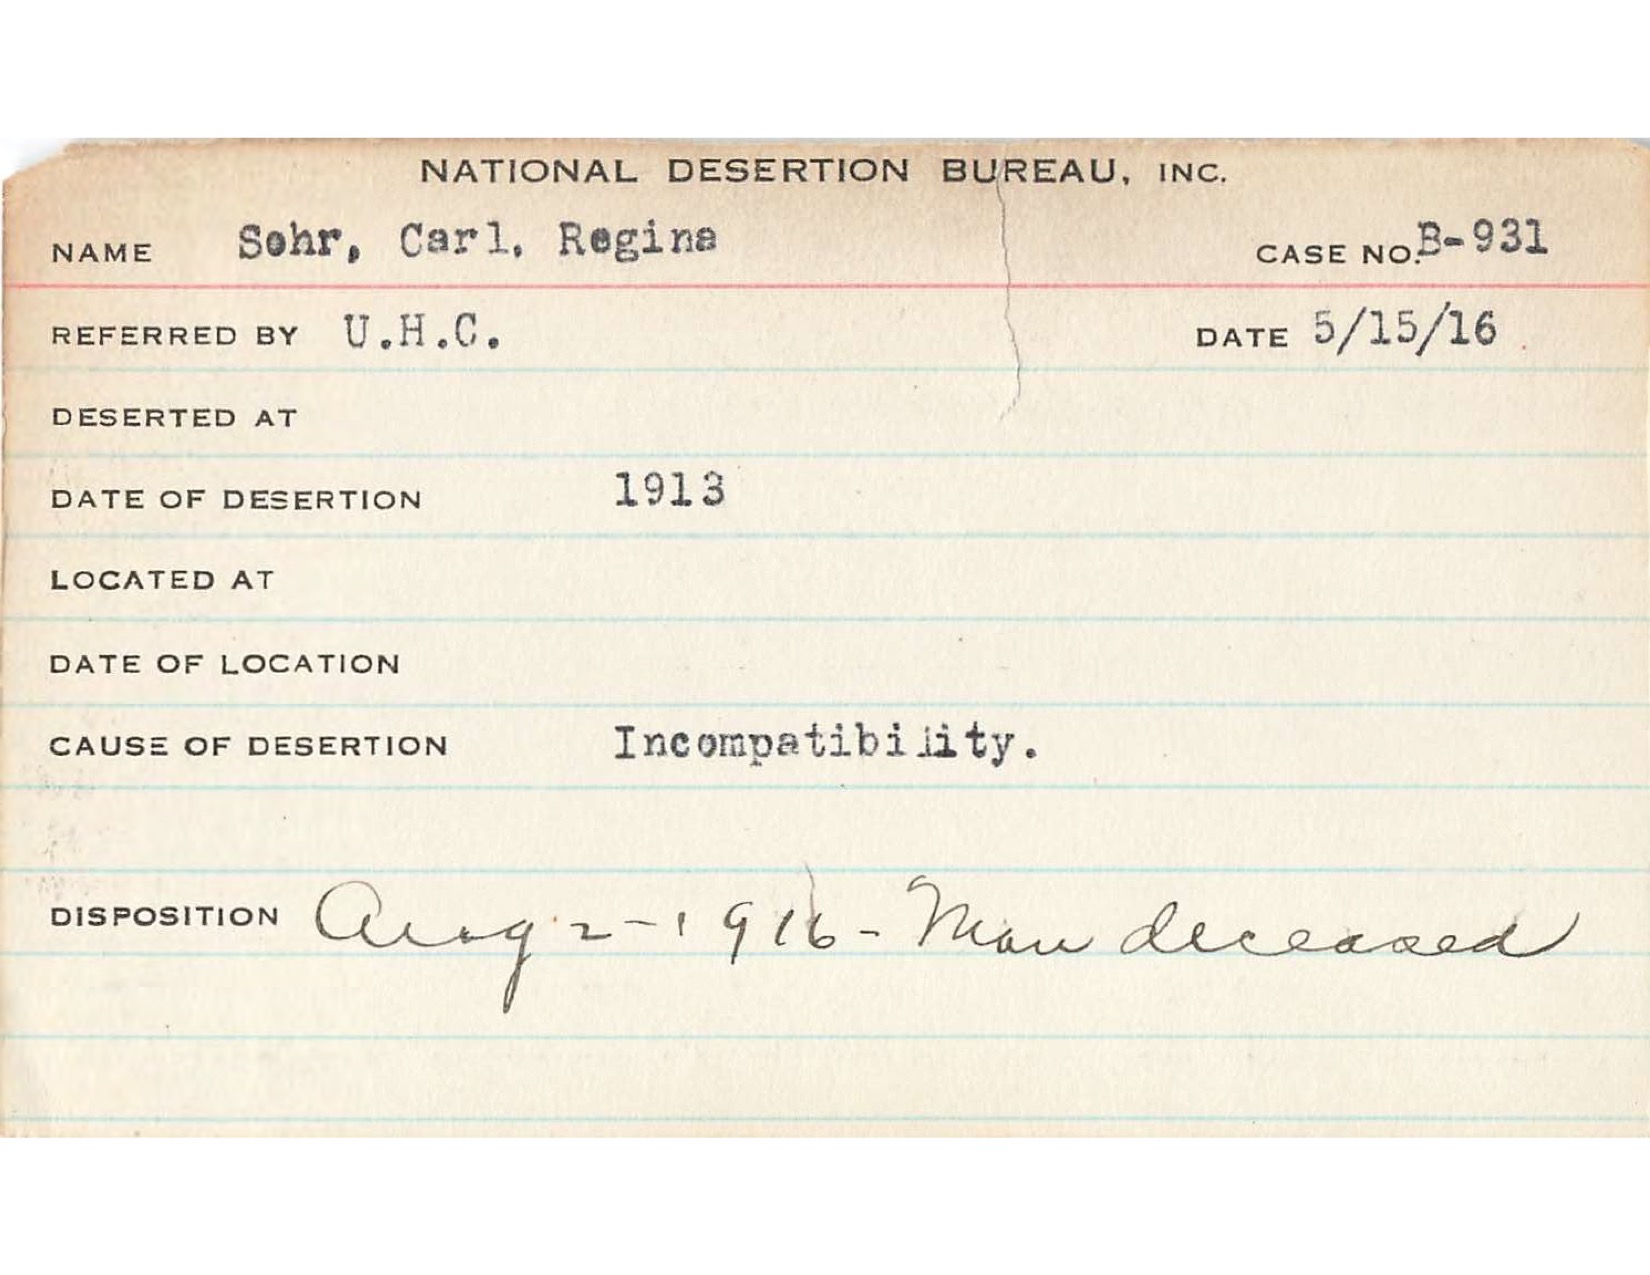 NATIONAL DESERTION BUREAU, INC.
NAME Sohr, Carl, Regina CASE NO. B-931
REFERRED BY U.H.C. DATE 5/15/16
DESERTED AT
DATE OF DESERTION 1913
LOCATED AT
DATE OF LOCATION
CAUSE OF DESERTION Incompatibility.
DISPOSITION Aug 2-1916- Man deceased